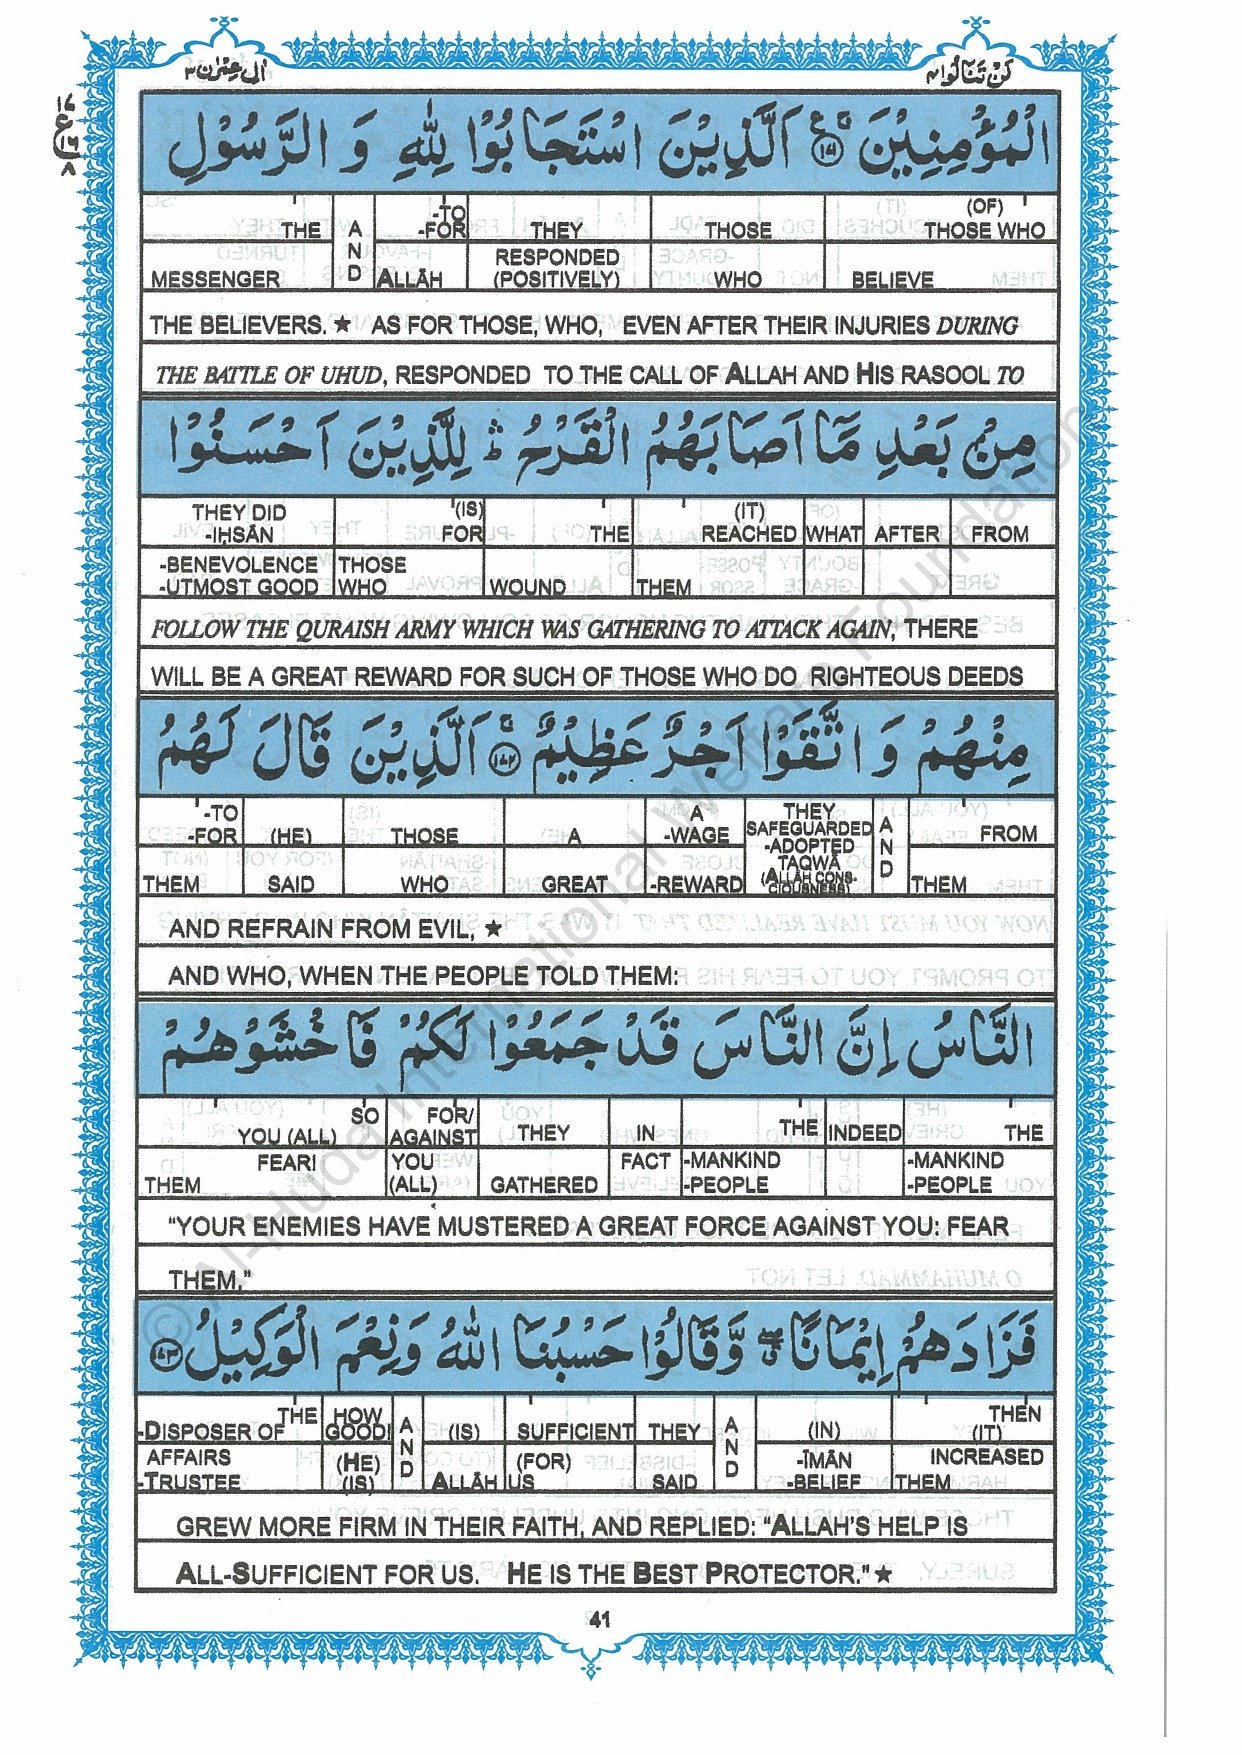 اٰل عِمْرٰن ٣
لَنْ تَنَالُوا ٤
١٧
ع
١٦
٨
الْمُؤْمِنِيْنَ ﴿١٧١﴾ اَلَّذِيْنَ اسْتَجَابُوْا لِلّٰهِ وَ الرَّسُوْلِ
THE AND -TO -FOR THEY THOSE (OF) THOSE WHO
MESSENGER ALLĀH RESPONDED (POSITIVELY) WHO BELIEVE
THE BELIEVERS. ★ AS FOR THOSE, WHO, EVEN AFTER THEIR INJURIES DURING
THE BATTLE OF UHUD, RESPONDED TO THE CALL OF ALLAH AND HIS RASOOL TO
مِنْۢ بَعْدِ مَاۤ اَصَابَهُمُ الْقَرْحُ ؕ لِلَّذِيْنَ اَحْسَنُوْا
THEY DID -IḤSĀN (IS) FOR THE (IT) REACHED WHAT AFTER FROM
-BENEVOLENCE -UTMOST GOOD THOSE WHO WOUND THEM
FOLLOW THE QURAISH ARMY WHICH WAS GATHERING TO ATTACK AGAIN, THERE
WILL BE A GREAT REWARD FOR SUCH OF THOSE WHO DO RIGHTEOUS DEEDS
مِنْهُمْ وَ اتَّقَوْا اَجْرٌ عَظِيْمٌ ﴿١٧٢﴾ اَلَّذِيْنَ قَالَ لَهُمُ
-TO -FOR (HE) THOSE A A -WAGE THEY SAFEGUARDED -ADOPTED TAQWĀ (ALLĀH CONS-CIOUSNESS) AND FROM
THEM SAID WHO GREAT -REWARD THEM
AND REFRAIN FROM EVIL, ★
AND WHO, WHEN THE PEOPLE TOLD THEM:
النَّاسُ اِنَّ النَّاسَ قَدْ جَمَعُوْا لَكُمْ فَاخْشَوْهُمْ
SO YOU (ALL) FOR/ AGAINST THEY IN THE INDEED THE
THEM FEAR! YOU (ALL) GATHERED FACT -MANKIND -PEOPLE -MANKIND -PEOPLE
"YOUR ENEMIES HAVE MUSTERED A GREAT FORCE AGAINST YOU: FEAR
THEM,"
فَزَادَهُمْ اِيْمَانًا ۖ وَّ قَالُوْا حَسْبُنَا اللّٰهُ وَ نِعْمَ الْوَكِيْلُ ﴿١٧٣﴾
THE -DISPOSER OF HOW GOOD! AND (IS) SUFFICIENT THEY AND (IN) THEN (IT)
AFFAIRS -TRUSTEE (HE) (IS) ALLĀH (FOR) US SAID -ĪMĀN -BELIEF INCREASED THEM
GREW MORE FIRM IN THEIR FAITH, AND REPLIED: "ALLAH'S HELP IS
ALL-SUFFICIENT FOR US. HE IS THE BEST PROTECTOR." ★
41
© Al-Huda International Welfare Foundation